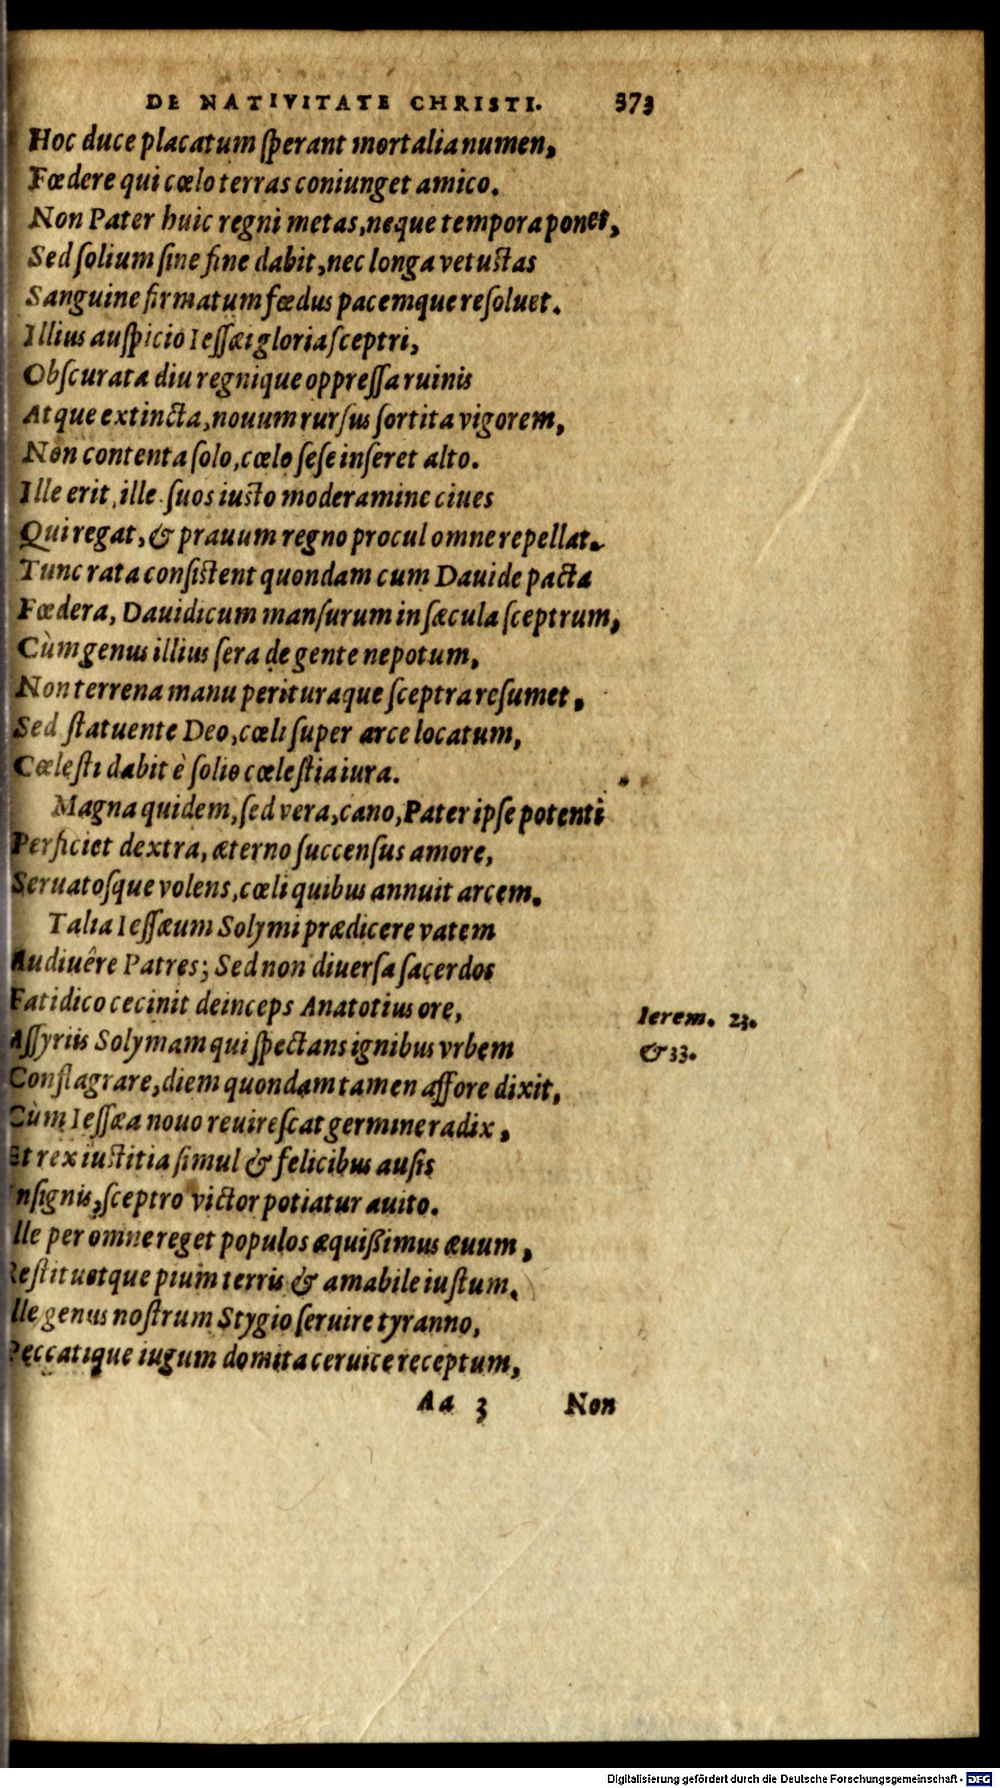 DE NATIVITATE CHRISTI. 373
Hoc duce placatum ſperant mortalia numen,
Fœdere qui cœlo terras coniunget amico.
Non Pater huic regni metas, neque tempora ponet,
Sed ſolium ſine fine dabit, nec longa vetuſtas
Sanguine firmatum fœdus pacemque reſoluet.
Illius auſpicio Ieſſæi gloria ſceptri,
Obſcurata diu regnique oppreſſa ruinis
Atque extincta, nouum rurſus ſortita vigorem,
Non contenta ſolo, cœlo ſeſe inſeret alto.
Ille erit, ille ſuos iuſto moderamine ciues
Qui regat, & prauum regno procul omne repellat.
Tunc rata conſiſtent quondam cum Dauide pacta
Fœdera, Dauidicum manſurum in ſæcula ſceptrum,
Cùm genus illius ſera de gente nepotum,
Non terrena manu perituraque ſceptra reſumet,
Sed ſtatuente Deo, cœli ſuper arce locatum,
Cœleſti dabit è ſolio cœleſtia iura.
Magna quidem, ſed vera, cano, Pater ipſe potenti
Perficiet dextra, æterno ſuccenſus amore,
Seruatoſque volens, cœli quibus annuit arcem.
Talia Ieſſæum Solymi prædicere vatem
Audiuêre Patres; Sed non diuerſa ſacerdos
Fatidico cecinit deinceps Anatotius ore,
Ierem. 23.
Aſſyriis Solymam qui ſpectans ignibus vrbem
& 33.
Conflagrare, diem quondam tamen affore dixit,
Cùm Ieſſæa nouo reuireſcat germine radix,
Et rex iuſtitia ſimul & felicibus auſis
Inſignis, ſceptro victor potiatur auito.
Ille per omne reget populos æquißimus æuum,
Reſtituetque pium terris & amabile iuſtum.
Ille genus noſtrum Stygio ſeruire tyranno,
Peccatique iugum domita ceruice receptum,
Aa 3 Non
Digitalisierung gefördert durch die Deutsche Forschungsgemeinschaft - DFG